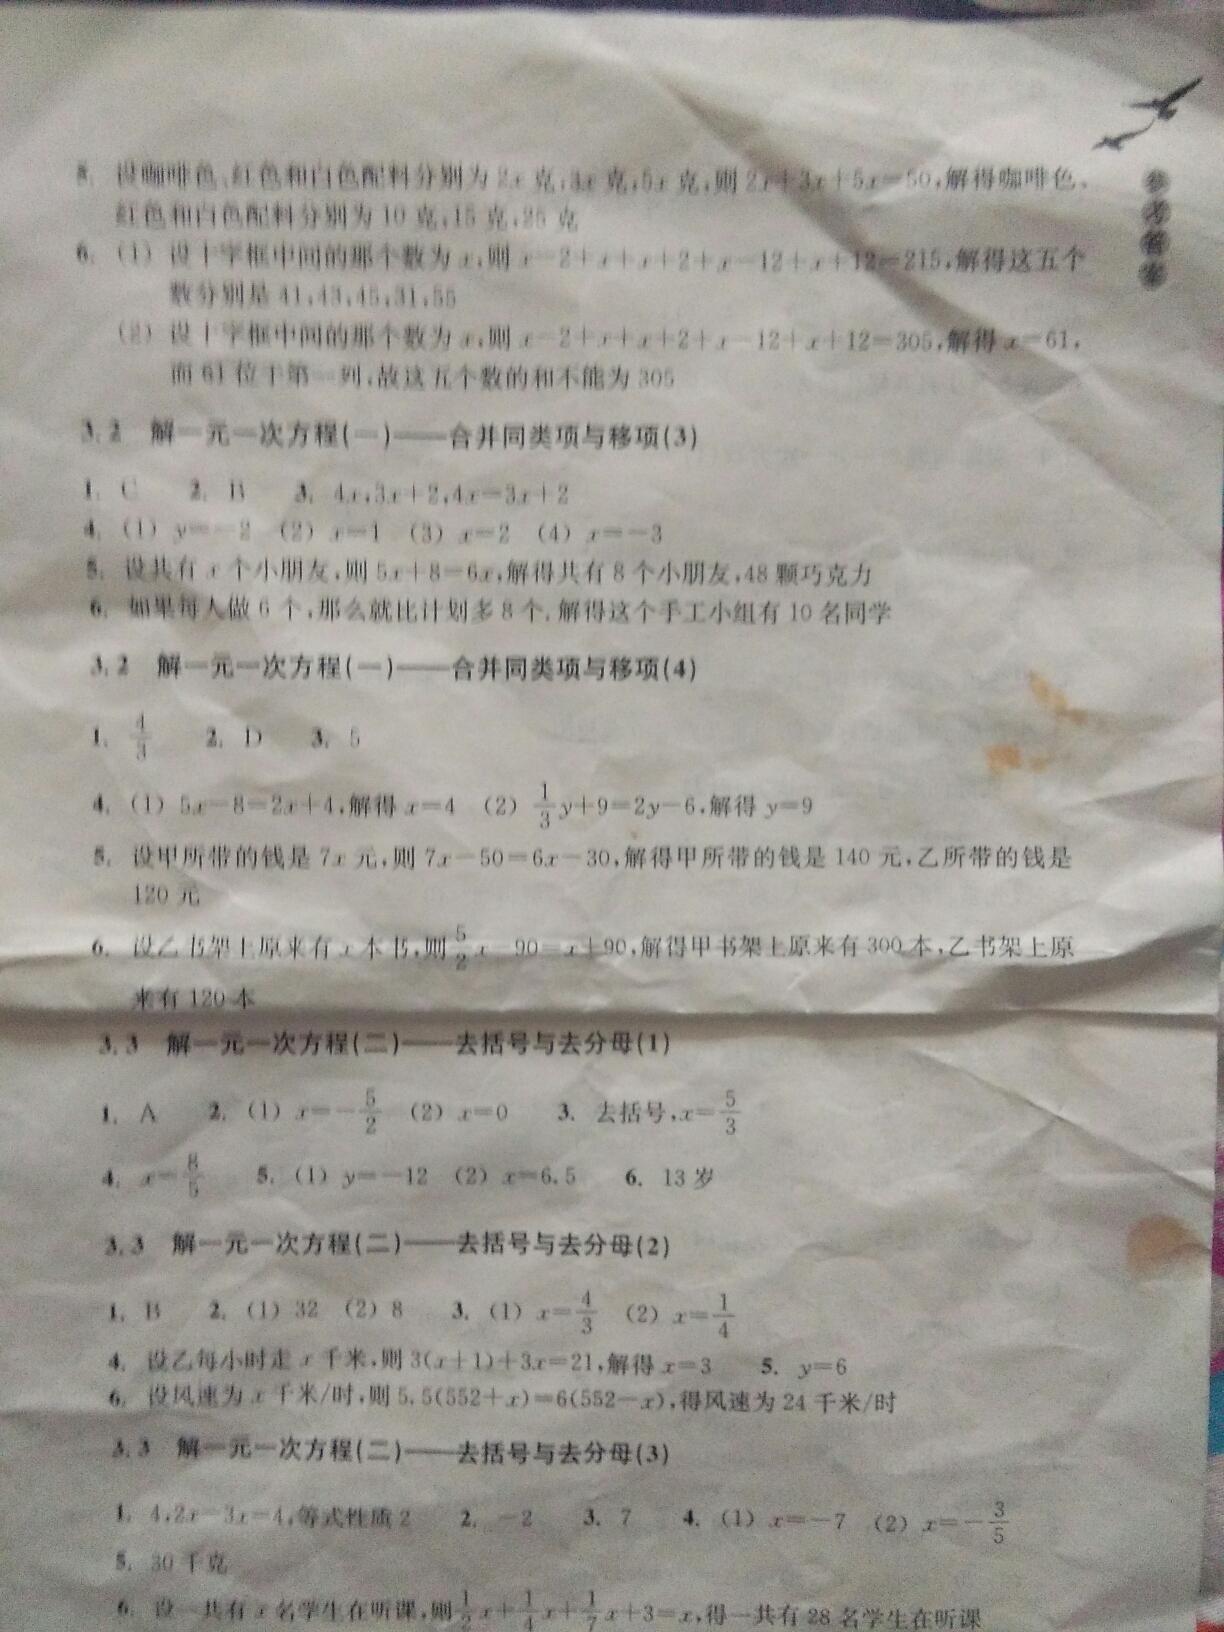 参考答案
5. 设咖啡色、红色和白色配料分别为 2x 克,3x 克,5x 克,则 2x+3x+5x=50,解得咖啡色、
红色和白色配料分别为 10 克,15 克,25 克
6. (1) 设十字框中间的那个数为 x,则 x-2+x+x+2+x-12+x+12=215,解得这五个
数分别是 41,43,45,31,55
(2) 设十字框中间的那个数为 x,则 x-2+x+x+2+x-12+x+12=305,解得 x=61,
而 61 位于第一列,故这五个数的和不能为 305
3.2 解一元一次方程(一)——合并同类项与移项(3)
1. C 2. B 3. 4x,3x+2,4x=3x+2
4. (1) y=-2 (2) x=1 (3) x=2 (4) x=-3
5. 设共有 x 个小朋友,则 5x+8=6x,解得共有 8 个小朋友,48 颗巧克力
6. 如果每人做 6 个,那么就比计划多 8 个.解得这个手工小组有 10 名同学
3.2 解一元一次方程(一)——合并同类项与移项(4)
1. 4/3 2. D 3. 5
4. (1) 5x-8=2x+4,解得 x=4 (2) 1/3y+9=2y-6,解得 y=9
5. 设甲所带的钱是 7x 元,则 7x-50=6x-30,解得甲所带的钱是 140 元,乙所带的钱是
120 元
6. 设乙书架上原来有 x 本书,则 5/2x-90=x+90,解得甲书架上原来有 300 本,乙书架上原
来有 120 本
3.3 解一元一次方程(二)——去括号与去分母(1)
1. A 2. (1) x=-5/2 (2) x=0 3. 去括号,x=5/3
4. x=8/5 5. (1) y=-12 (2) x=6.5 6. 13 岁
3.3 解一元一次方程(二)——去括号与去分母(2)
1. B 2. (1) 32 (2) 8 3. (1) x=4/3 (2) x=1/4
4. 设乙每小时走 x 千米,则 3(x+1)+3x=21,解得 x=3 5. y=6
6. 设风速为 x 千米/时,则 5.5(552+x)=6(552-x),得风速为 24 千米/时
3.3 解一元一次方程(二)——去括号与去分母(3)
1. 4,2x-3x=4,等式性质 2 2. -2 3. 7 4. (1) x=-7 (2) x=-3/5
5. 30 千克
6. 设一共有 x 名学生在听课,则 1/2x+1/4x+1/7x+3=x,得一共有 28 名学生在听课